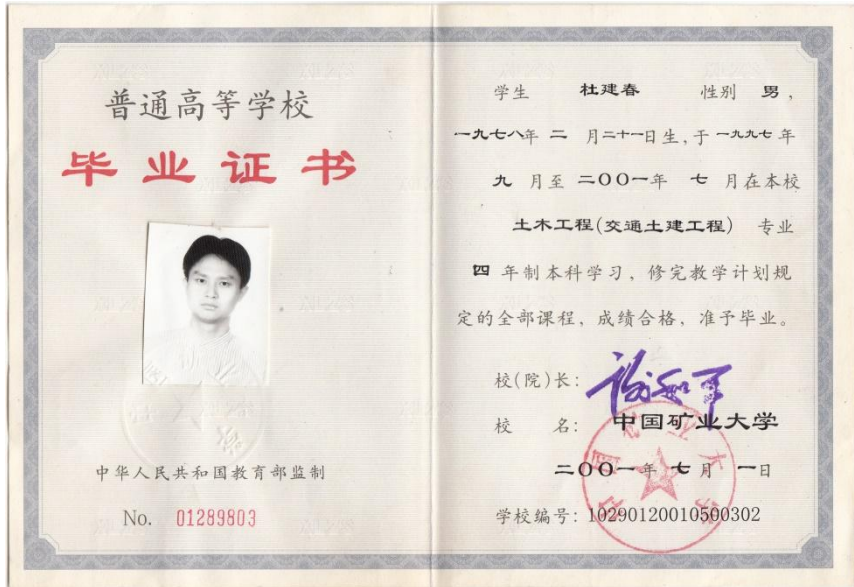 普通高等学校
毕业证书
中华人民共和国教育部监制
No. 01289803
学生 杜建春 性别 男，
一九七八年 二 月二十一日生，于 一九九七 年
九 月至 二〇〇一年 七 月在本校
土木工程(交通土建工程) 专业
四 年制本科学习，修完教学计划规
定的全部课程，成绩合格，准予毕业。
校(院)长： 谢和平
校 名： 中国矿业大学
二〇〇一年 七 月 一日
学校编号：10290120010500302
中国矿业大学